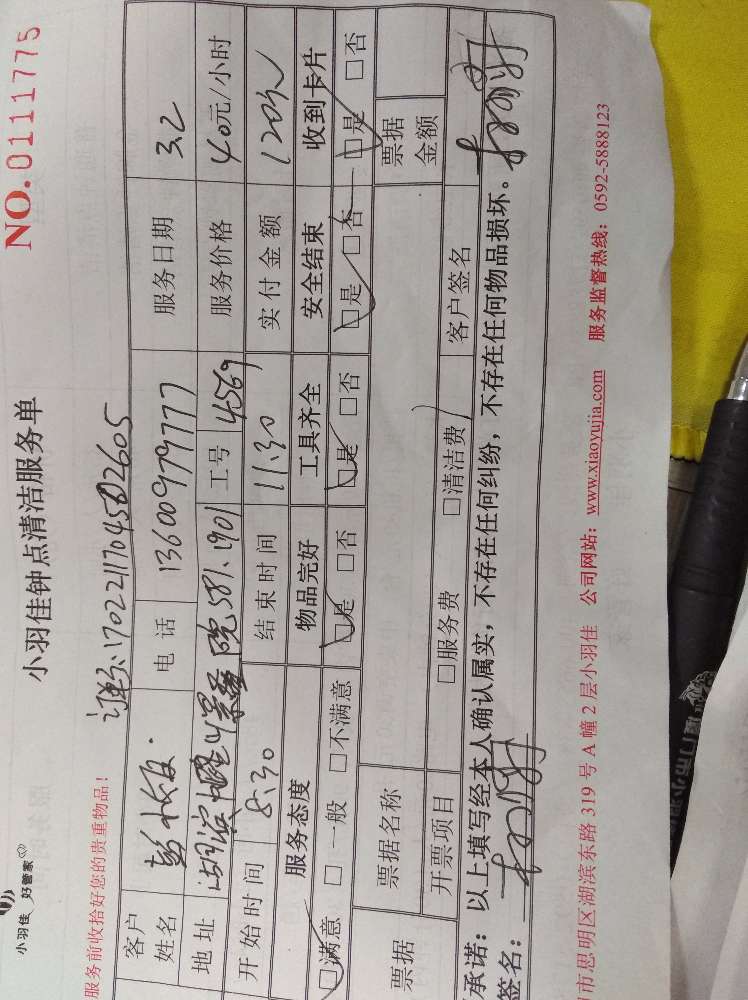 小羽佳 好管家
小羽佳钟点清洁服务单
NO.0111775
服务前收拾好您的贵重物品!
客户姓名 电话 13600979777 服务日期 3.2
地址 工号 4569 服务价格 40元/小时
开始时间 8:30 结束时间 11:30 实付金额 120元
服务态度 物品完好 工具齐全 安全结束 收到卡片
□满意 □一般 □不满意 □是 □否 □是 □否 □是 □否 □是 □否
票据 票据名称 票据金额
开票项目 □服务费 □清洁费 客户签名
承诺:以上填写经本人确认属实,不存在任何纠纷,不存在任何物品损坏。
签名:
市思明区湖滨东路 319 号 A 幢 2 层小羽佳 公司网站:www.xiaoyujia.com 服务监督热线:0592-5888123